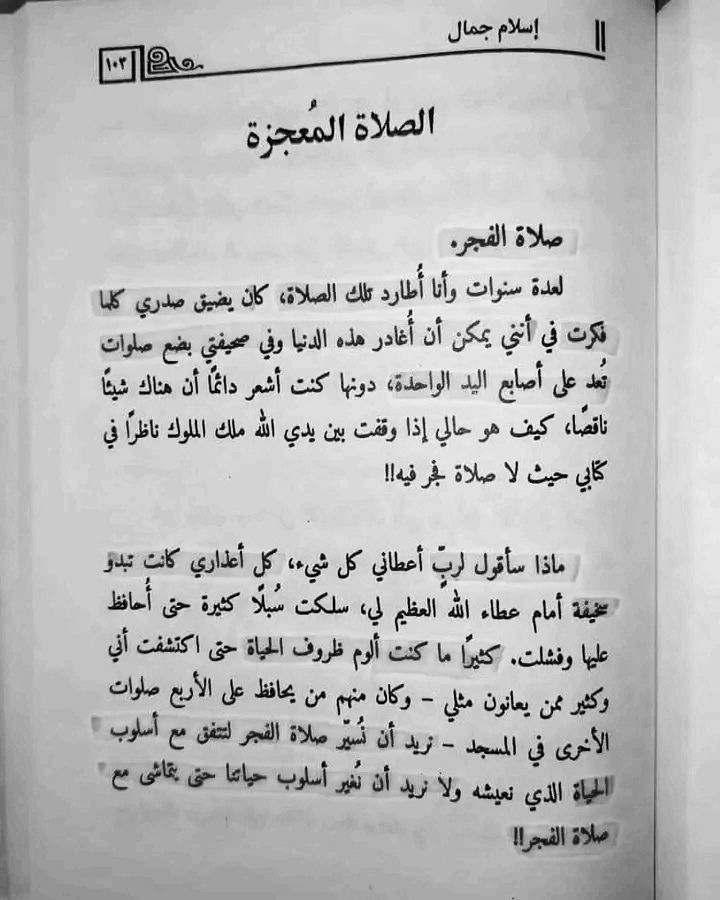 إسلام جمال
١٠٣
الصلاة المُعجزة
صلاة الفجر.
لعدة سنوات وأنا أُطارد تلك الصلاة، كان يضيق صدري كلما
فكرت في أنني يمكن أن أُغادر هذه الدنيا وفي صحيفتي بضع صلوات
تُعد على أصابع اليد الواحدة، دونها كنت أشعر دائمًا أن هناك شيئًا
ناقصًا، كيف هو حالي إذا وقفت بين يدي الله ملك الملوك ناظرًا في
كتابي حيث لا صلاة فجر فيه!!
ماذا سأقول لربٍّ أعطاني كل شيء، كل أعذاري كانت تبدو
سخيفة أمام عطاء الله العظيم لي، سلكت سُبلًا كثيرة حتى أُحافظ
عليها وفشلت. كثيرًا ما كنت ألوم ظروف الحياة حتى اكتشفت أني
وكثير ممن يعانون مثلي – وكان منهم من يحافظ على الأربع صلوات
الأخرى في المسجد – نريد أن نُسيّر صلاة الفجر لتتفق مع أسلوب
الحياة الذي نعيشه ولا نريد أن نُغير أسلوب حياتنا حتى يتماشى مع
صلاة الفجر!!